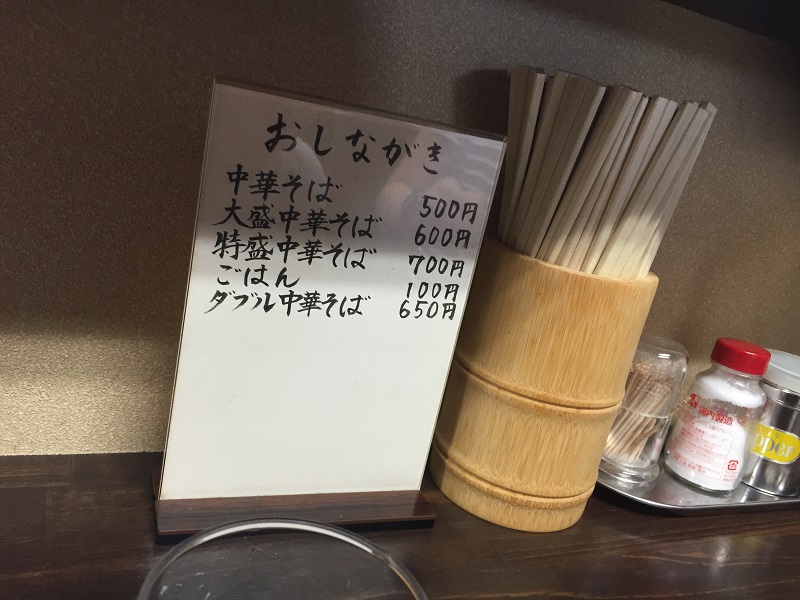 おしながき
中華そば 500円
大盛中華そば 600円
特盛中華そば 700円
ごはん 100円
ダブル中華そば 650円
国内製造
pper